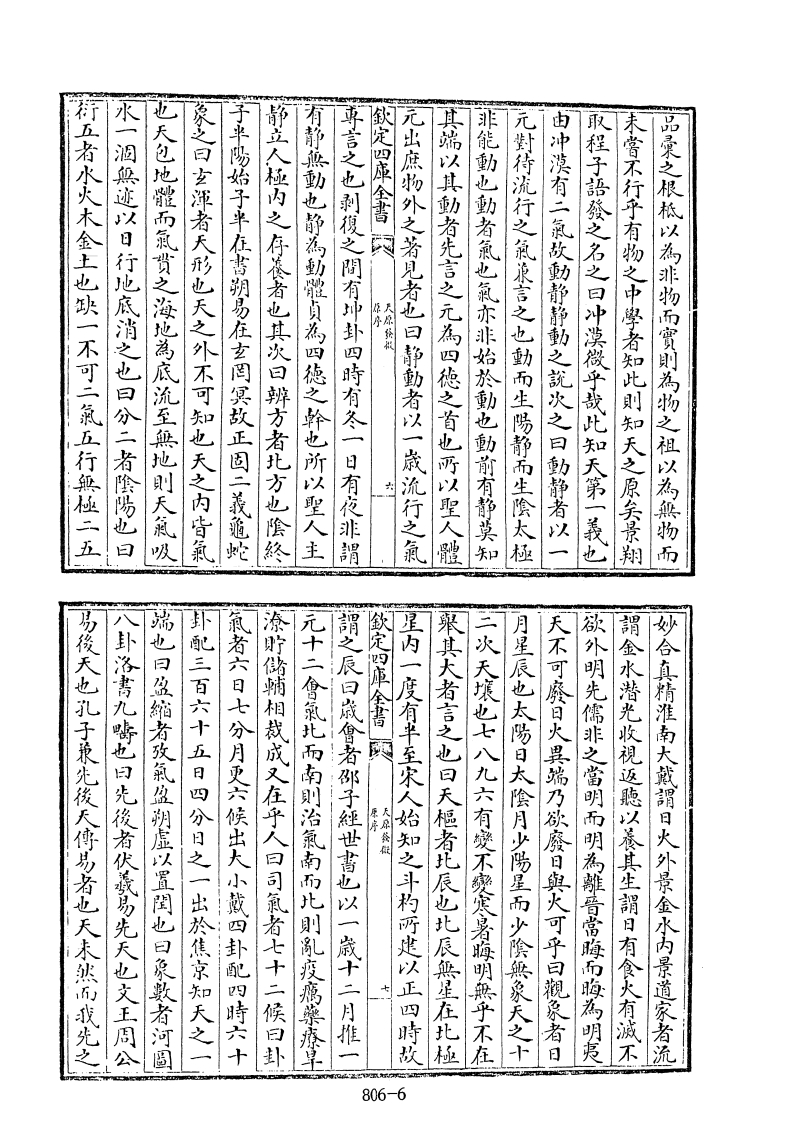 品彚之根柢以為非物而實則為物之祖以為無物而
未嘗不行乎有物之中學者知此則知天之原矣景翔
取程子語發之名之曰冲漠微乎哉此知天第一義也
由冲漠有二氣故動静静動之説次之曰動静者以一
元對待流行之氣兼言之也動而生陽静而生陰太極
非能動也動者氣也氣亦非始於動也動前有静莫知
其端以其動者先言之元為四德之首也所以聖人體
元出庶物外之著見者也曰静動者以一歳流行之氣
欽定四庫全書
天原發微
原序
六
專言之也剥復之間有坤卦四時有冬一日有夜非謂
有静無動也静為動體貞為四德之幹也所以聖人主
静立人極内之存養者也其次曰辨方者北方也陰終
子半陽始子半在書朔易在玄罔冥故正固二義龜蛇
象之曰玄渾者天形也天之外不可知也天之内皆氣
也天包地體而氣貫之海地為底流至無地則天氣吸
水一涸無迹以日行地底消之也曰分二者陰陽也曰
衍五者水火木金土也缺一不可二氣五行無極二五
妙合真精淮南大戴謂日火外景金水内景道家者流
謂金水潜光收視返聽以養其生謂日有食火有滅不
欲外明先儒非之當明而明為離晉當晦而晦為明夷
天不可廢日火異端乃欲廢日與火可乎曰觀象者日
月星辰也太陽日太陰月少陽星而少陰無象天之十
二次天壤也七八九六有變不變寒暑晦明無乎不在
舉其大者言之也曰天樞者北辰也北辰無星在北極
星内一度有半至宋人始知之斗杓所建以正四時故
欽定四庫全書
天原發微
原序
七
謂之辰曰歳會者邵子經世書也以一歳十二月推一
元十二會氣北而南則治氣南而北則亂疫癘藥療旱
潦貯儲輔相裁成又在乎人曰司氣者七十二候曰卦
氣者六日七分月更六候出大小戴四卦配四時六十
卦配三百六十五日四分日之一出於焦京知天之一
端也曰盈縮者攷氣盈朔虚以置閏也曰象數者河圖
八卦洛書九疇也曰先後者伏羲易先天也文王周公
易後天也孔子兼先後天傳易者也天未然而我先之
806-6